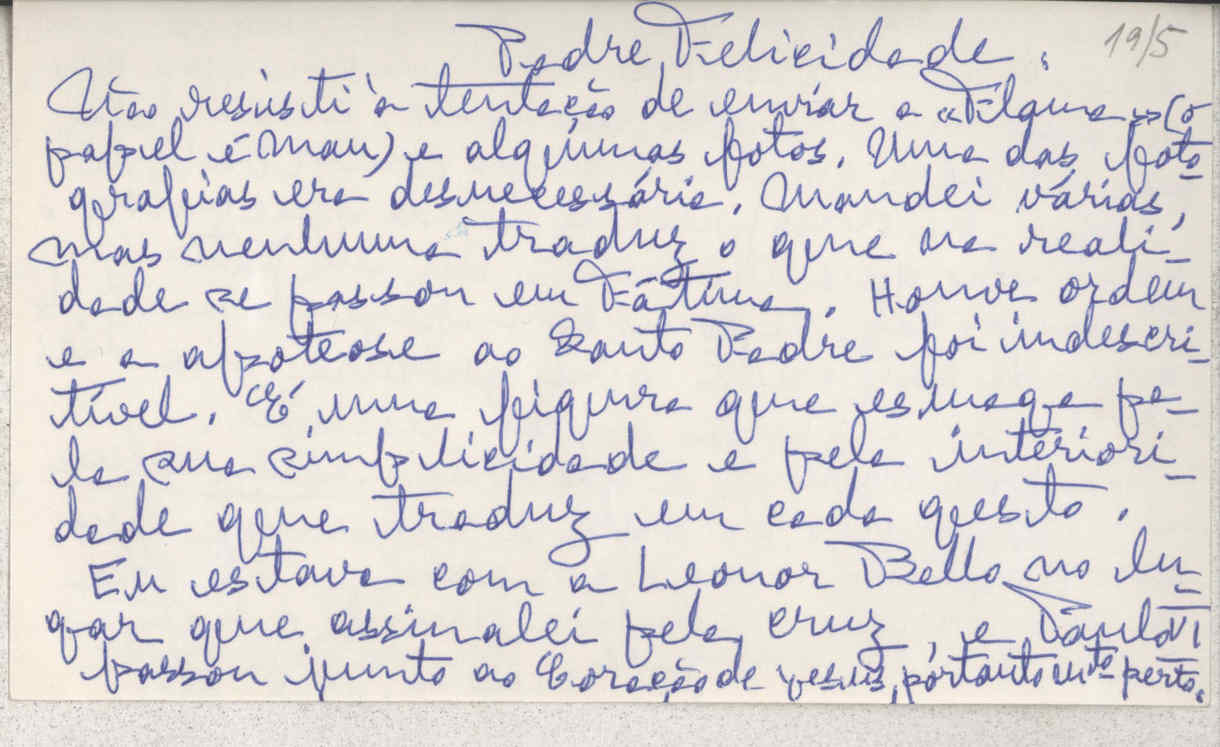 Padre Felicidade, 19/5
Não resisti à tentação de enviar a «Flama» (o
papel é mau) e algumas fotos. Uma das foto-
grafias era desnecessária. Mandei várias,
mas nenhuma traduz o que na reali-
dade se passou em Fátima. Houve ordem
e a apoteose ao Santo Padre foi indescri-
tível. É uma figura que esmaga pe-
la sua simplicidade e pela interiori-
dade que traduz em cada gesto.
Eu estava com a Leonor Bello no lu-
gar que assinalei pela cruz, e Paulo VI
passou junto ao Coração de Jesus, portanto mto perto.